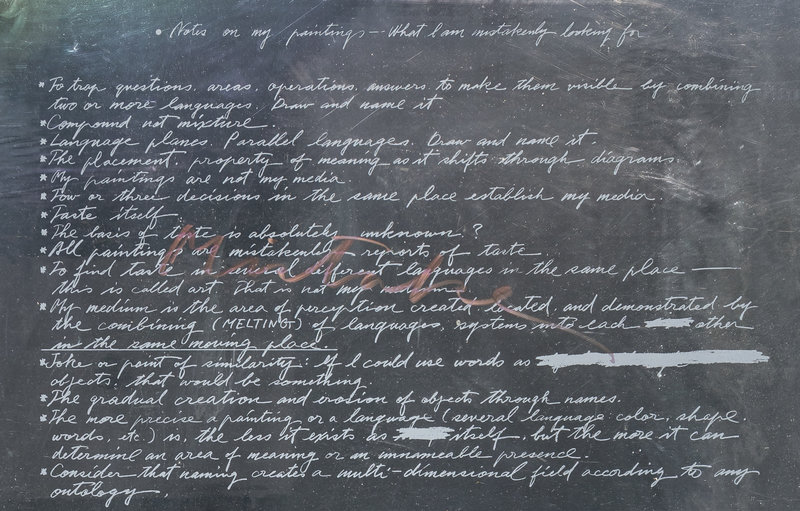 • Notes on my paintings — What I am mistakenly looking for
* To trap questions, areas, operations, answers, to make them visible by combining
two or more languages. Draw and name it
* Compound not mixture.
* Language planes. Parallel languages. Draw and name it.
* The placement, property of meaning as it shifts through diagrams.
* My paintings are not my media
* Tow or three decisions in the same place establish my media.
* Taste itself
* The basis of taste is absolutely unknown?
* All paintings are mistakenly reports of taste
* To find taste in several different languages in the same place —
this is called art that is not my
* My medium is the area of perception created, located, and demonstrated by
the combining (MELTING) of languages, systems into each other
in the same moving place.
* Joke or point of similarity: If I could use words as
objects that would be something
* The gradual creation and erosion of objects through names.
* The more precise a painting or a language (several language: color, shape,
words, etc.) is, the less it exists as itself, but the more it can
determine an area of meaning or an unnameable presence.
* Consider that naming creates a multi-dimensional field according to any
ontology.